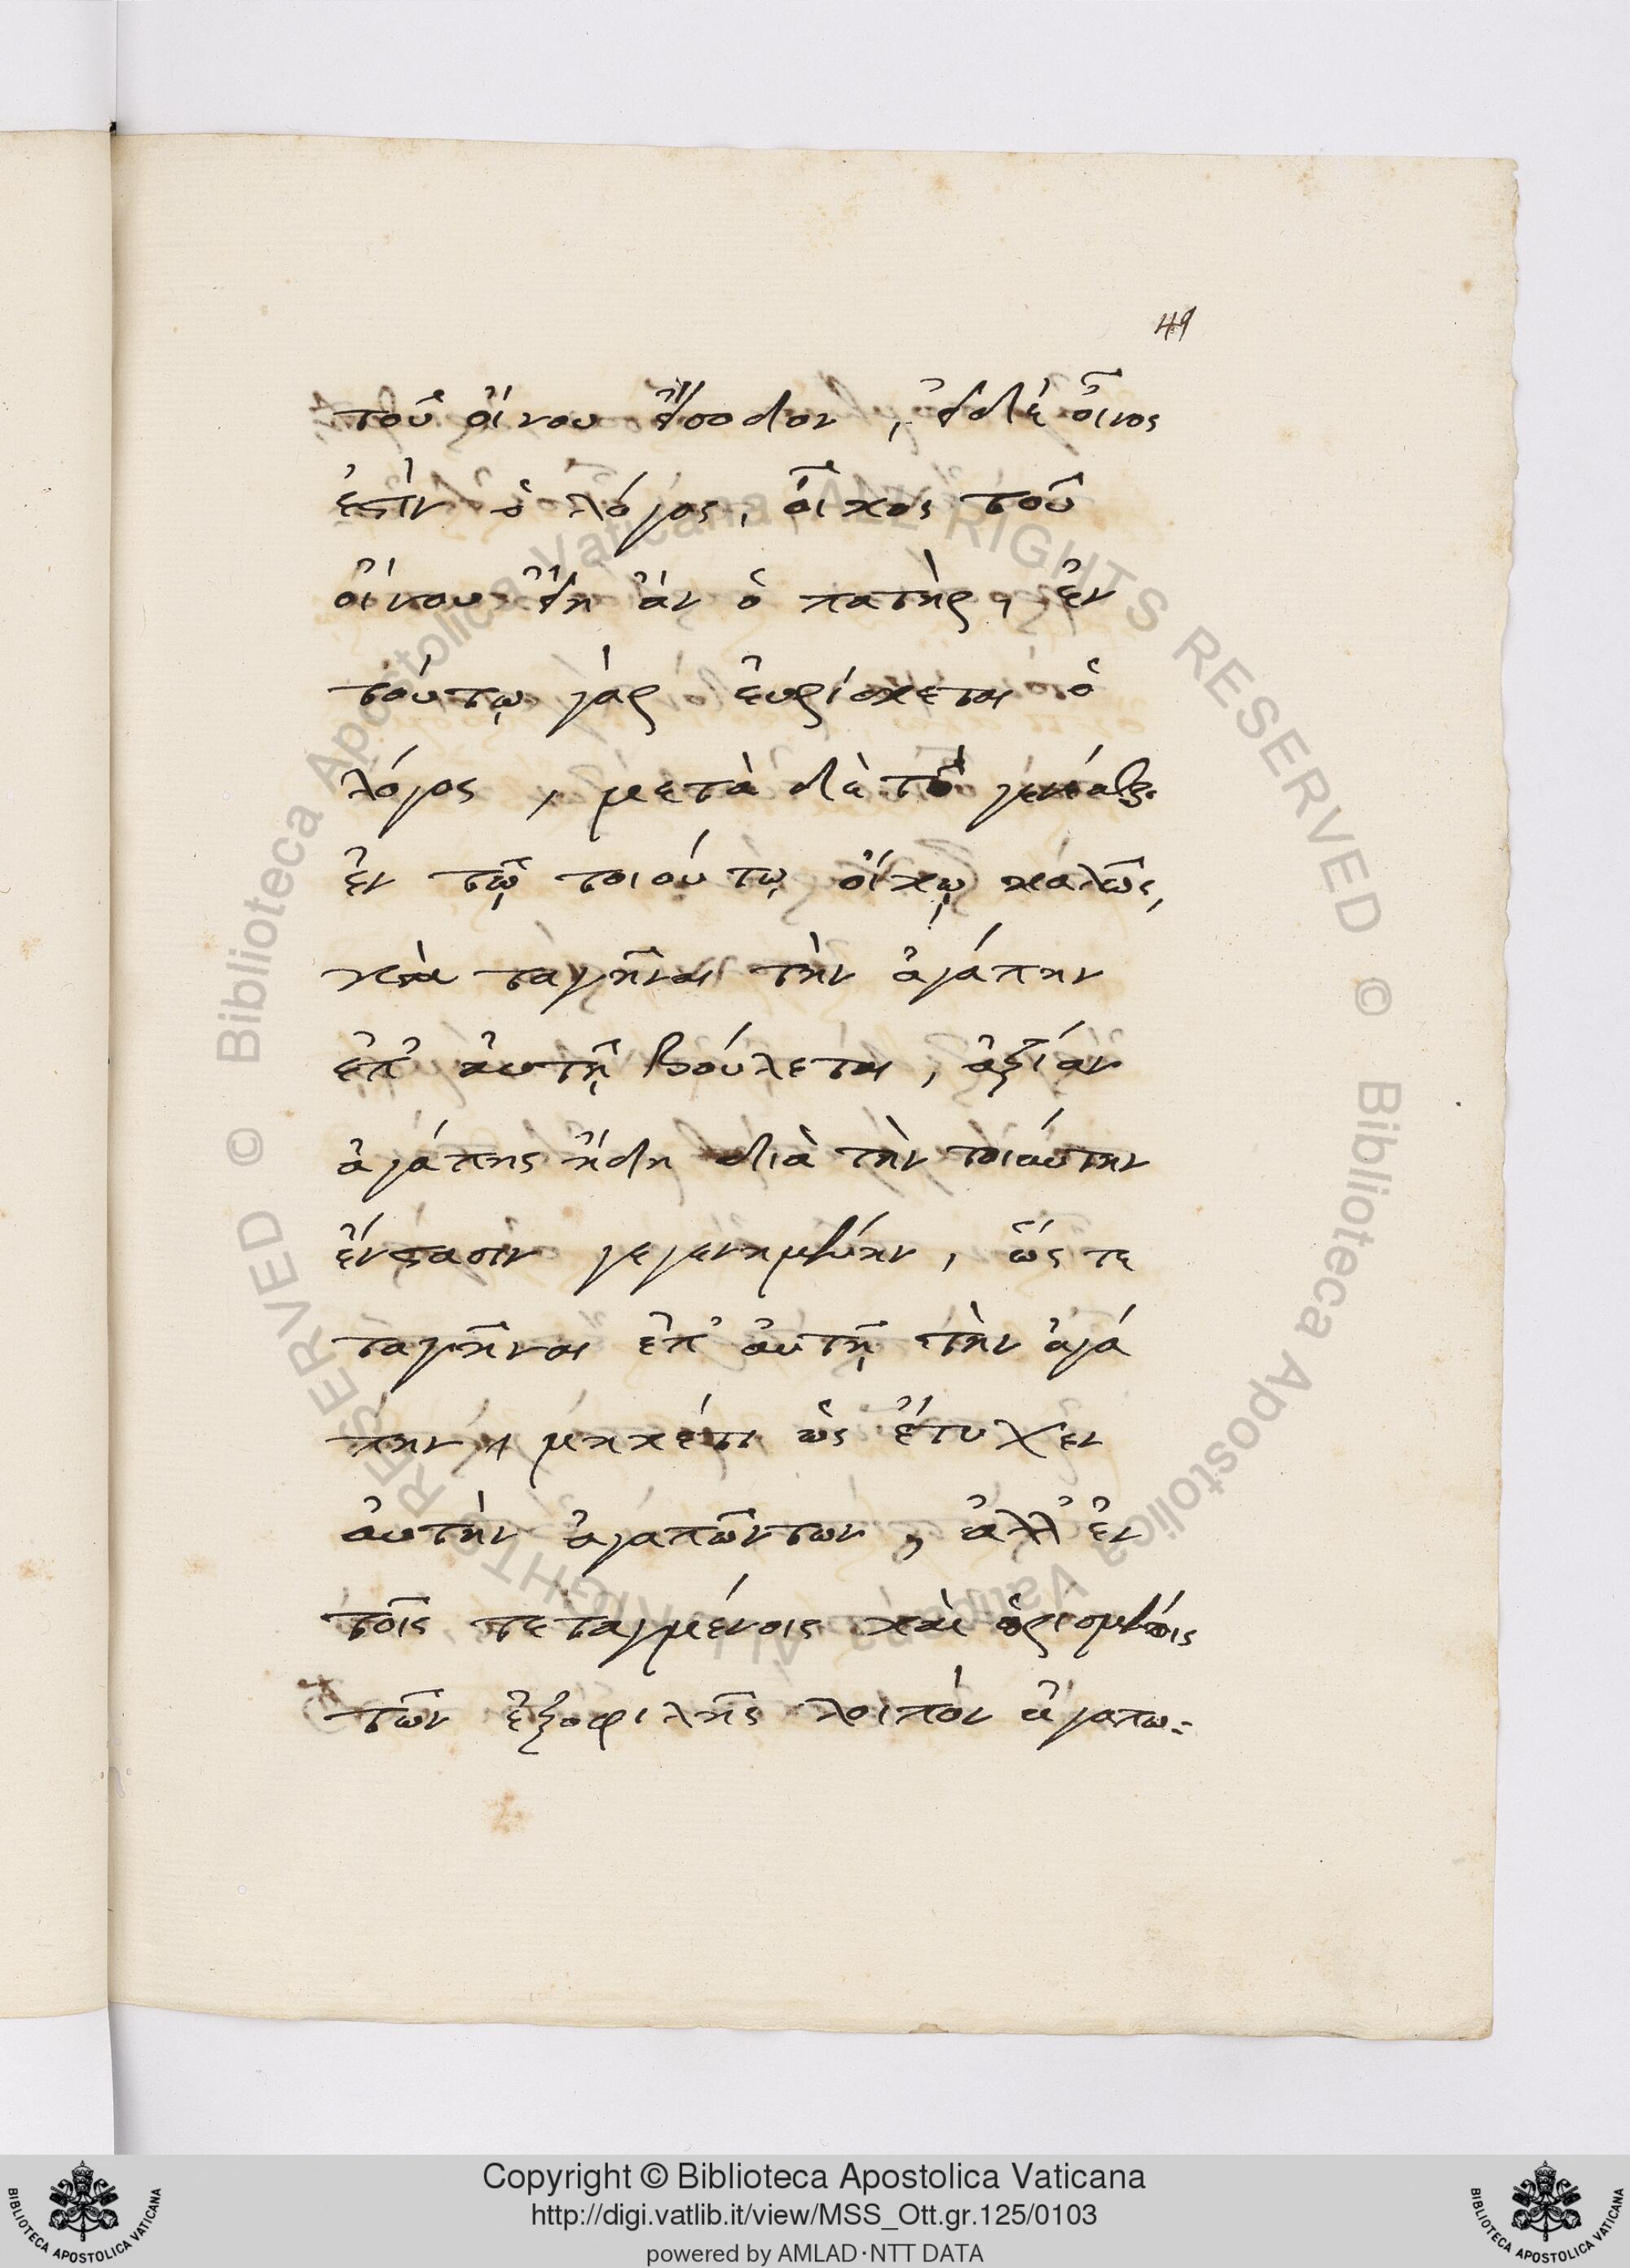 49
τοῦ οἴνου εἴσοδον, εἰ δὲ οἶνος
ἐστὶν ὁ λόγος, οἶκος τοῦ
οἴνου εἴη ἂν ὁ πατὴρ, ἐν
τούτῳ γὰρ εὑρίσκεται ὁ
λόγος, μετὰ δὲ τὸ γενέσθαι
ἐν τῷ τοιούτῳ οἴκῳ καλῶς,
καὶ ταγῆναι τὴν ἀγάπην
ἐπ' αὐτῇ βούλεται, ἀξίαν
ἀγάπης ἤδη διὰ τὴν τοιαύτην
ἔνστασιν γεγενημένην, ὥς τε
ταγῆναι ἐπ' αὐτῇ τὴν ἀγά
πην, μηκέτι ὡς ἔτυχεν
αὐτὴν ἀγαπώντων, ἀλλ' ἐν
τοῖς τεταγμένοις καὶ ὁρισμένοις
τῶν ἐξοφιλῆς λοιπὸν ἀγαπω-
Copyright © Biblioteca Apostolica Vaticana
http://digi.vatlib.it/view/MSS_Ott.gr.125/0103
powered by AMLAD·NTT DATA
BIBLIOTECA APOSTOLICA VATICANA
BIBLIOTECA APOSTOLICA VATICANA
© Biblioteca Apostolica Vaticana ALL RIGHTS RESERVED
© Biblioteca Apostolica Vaticana ALL RIGHTS RESERVED